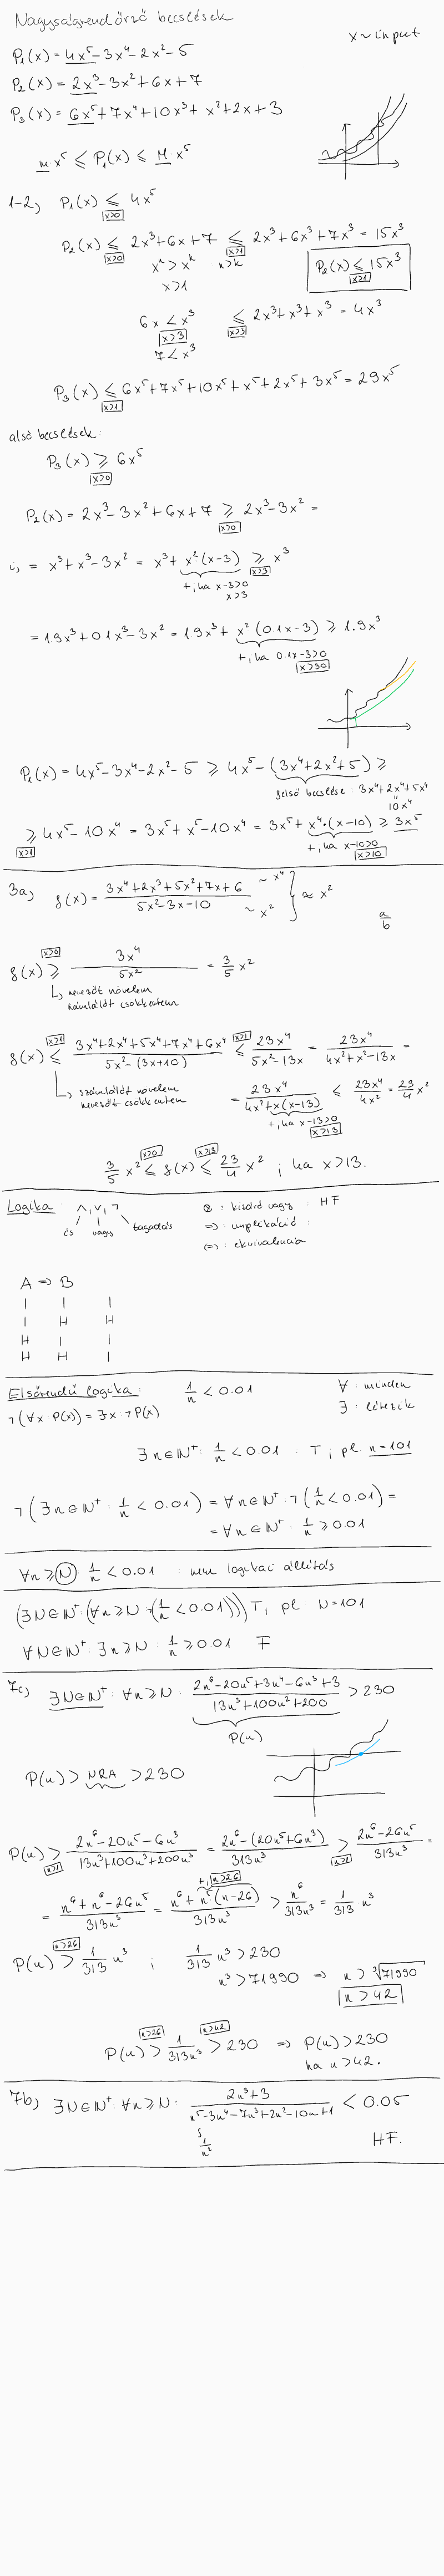 Nagyságrendőrző becslések
x ~ input
P₁(x) = 4x⁵-3x⁴-2x²-5
P₂(x) = 2x³-3x²+6x+7
P₃(x) = 6x⁵+7x⁴+10x³+x²+2x+3
m x⁵ ≤ P₁(x) ≤ M·x⁵
1-2, P₁(x) ≤ 4x⁵
x>0
P₂(x) ≤ 2x³+6x+7 ≤ 2x³+6x³+7x³ = 15x³
x>0 x>1
xⁿ > xᵏ n>k
x>1
P₂(x) ≤ 15x³
x>1
6x < x³ ≤ 2x³+x³+x³ = 4x³
x>3 x>3
7 < x³
P₃(x) ≤ 6x⁵+7x⁵+10x⁵+x⁵+2x⁵+3x⁵ = 29x⁵
x>1
alsó becslések:
P₃(x) ≥ 6x⁵
x>0
P₂(x) = 2x³-3x²+6x+7 ≥ 2x³-3x² =
x>0
i, = x³+x³-3x² = x³+x²·(x-3) ≥ x³
x>3
+, ha x-3>0
x>3
= 1.9x³+0.1x³-3x² = 1.9x³+x²(0.1x-3) ≥ 1.9x³
+, ha 0.1x-3>0
x>30
P₁(x) = 4x⁵-3x⁴-2x²-5 ≥ 4x⁵-(3x⁴+2x²+5) ≥
felső becslése: 3x⁴+2x⁴+5x⁴
10x⁴
≥ 4x⁵-10x⁴ = 3x⁵+x⁵-10x⁴ = 3x⁵+x⁴·(x-10) ≥ 3x⁵
x>1
+, ha x-10>0
x>10
3a) f(x) = (3x⁴+2x³+5x²+7x+6)/(5x²-3x-10) ~ x⁴ ~ x² } ≈ x²
a/b
f(x) ≥ 3x⁴/5x² = 3/5 x²
x>0
↳ nevezőt növelem
számlálót csökkentem
f(x) ≤ (3x⁴+2x⁴+5x⁴+7x⁴+6x⁴)/(5x²-(3x+10)) ≤ 23x⁴/(5x²-13x) = 23x⁴/(4x²+x²-13x) =
x>1 x>1
↳ számlálót növelem
nevezőt csökkentem
= 23x⁴/(4x²+x(x-13)) ≤ 23x⁴/4x² = 23/4 x²
+, ha x-13>0
x>13
3/5 x² ≤ f(x) ≤ 23/4 x² ; ha x>13.
x>0 x>13
Logika: ∧, ∨, ¬
és vagy tagadás
⊗ : kizáró vagy : HF
⇒ : implikáció :
⇔ : ekvivalencia
A ⇒ B
I I I
I H H
H I I
H H I
Elsőrendű logika: 1/n < 0.01
∀ : minden
∃ : létezik
¬(∀x: P(x)) = ∃x: ¬P(x)
∃n∈ℕ⁺: 1/n < 0.01 : T, pl: n=101
¬(∃n∈ℕ⁺: 1/n < 0.01) = ∀n∈ℕ⁺: ¬(1/n < 0.01) =
= ∀n∈ℕ⁺: 1/n ≥ 0.01
∀n ≥ N: 1/n < 0.01 : nem logikai állítás
(∃N∈ℕ⁺: (∀n ≥ N: (1/n < 0.01))) T, pl N=101
∀N∈ℕ⁺: ∃n ≥ N: 1/n ≥ 0.01 F
7c) ∃N∈ℕ⁺: ∀n ≥ N: (2n⁶-20n⁵+3n⁴-6n³+3)/(13n³+100n²+200) > 230
P(n)
P(n) > NRA > 230
P(n) > (2n⁶-20n⁵-6n³)/(13n³+100n³+200n³) = (2n⁶-(20n⁵+6n³))/313n³ > (2n⁶-26n⁵)/313n³ =
n>1 n>1
+, n>26
= (n⁶+n⁶-26n⁵)/313n³ = (n⁶+n⁵(n-26))/313n³ > n⁶/313n³ = 1/313 n³
P(n) > 1/313 n³ ; 1/313 n³ > 230
n>26
n³ > 71990 ⇒ n > ³√71990
n > 42
P(n) > 1/313 n³ > 230 ⇒ P(n) > 230
n>26 n>42
ha n>42.
7b) ∃N∈ℕ⁺: ∀n ≥ N: (2n³+3)/(n⁵-3n⁴-7n³+2n²-10n+1) < 0.05
1/n²
HF.